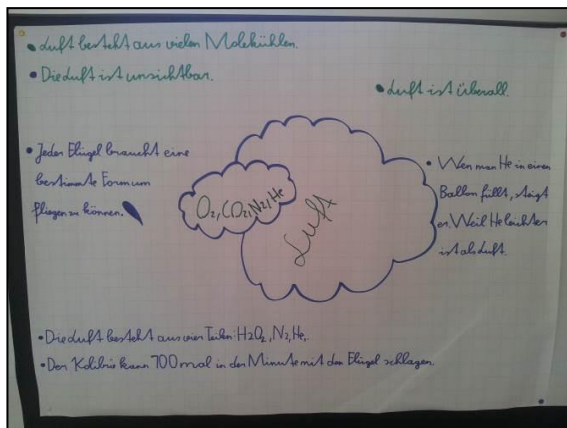 • Luft besteht aus vielen Molekühlen.
• Die Luft ist unsichtbar.
• Luft ist überall.
• Jeder Flügel braucht eine
bestimmte Form um
fliegen zu können.
O2, CO2, N2, He
Luft
• Wen man He in einen
Ballon füllt, steigt
er. Weil He leichter
ist als Luft.
• Die Luft besteht aus vier Teilen: H2O2, N2, He,
• Der Kolibrie kann 700 mal in der Minute mit den Flügel schlagen.